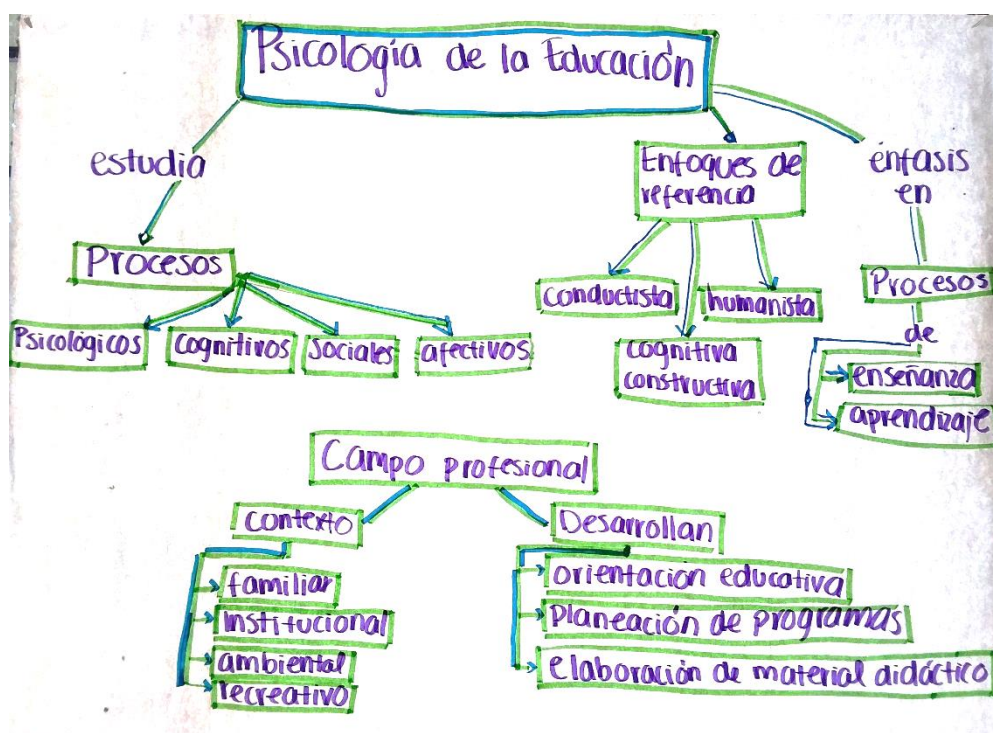 Psicología de la Educación
estudia
Procesos
Psicológicos
cognitivos
sociales
afectivos
Enfoques de
referencia
conductista
humanista
cognitiva
constructiva
énfasis
en
Procesos
de
enseñanza
aprendizaje
Campo profesional
contexto
familiar
institucional
ambiental
recreativo
Desarrollan
orientación educativa
Planeación de programas
elaboración de material didáctico